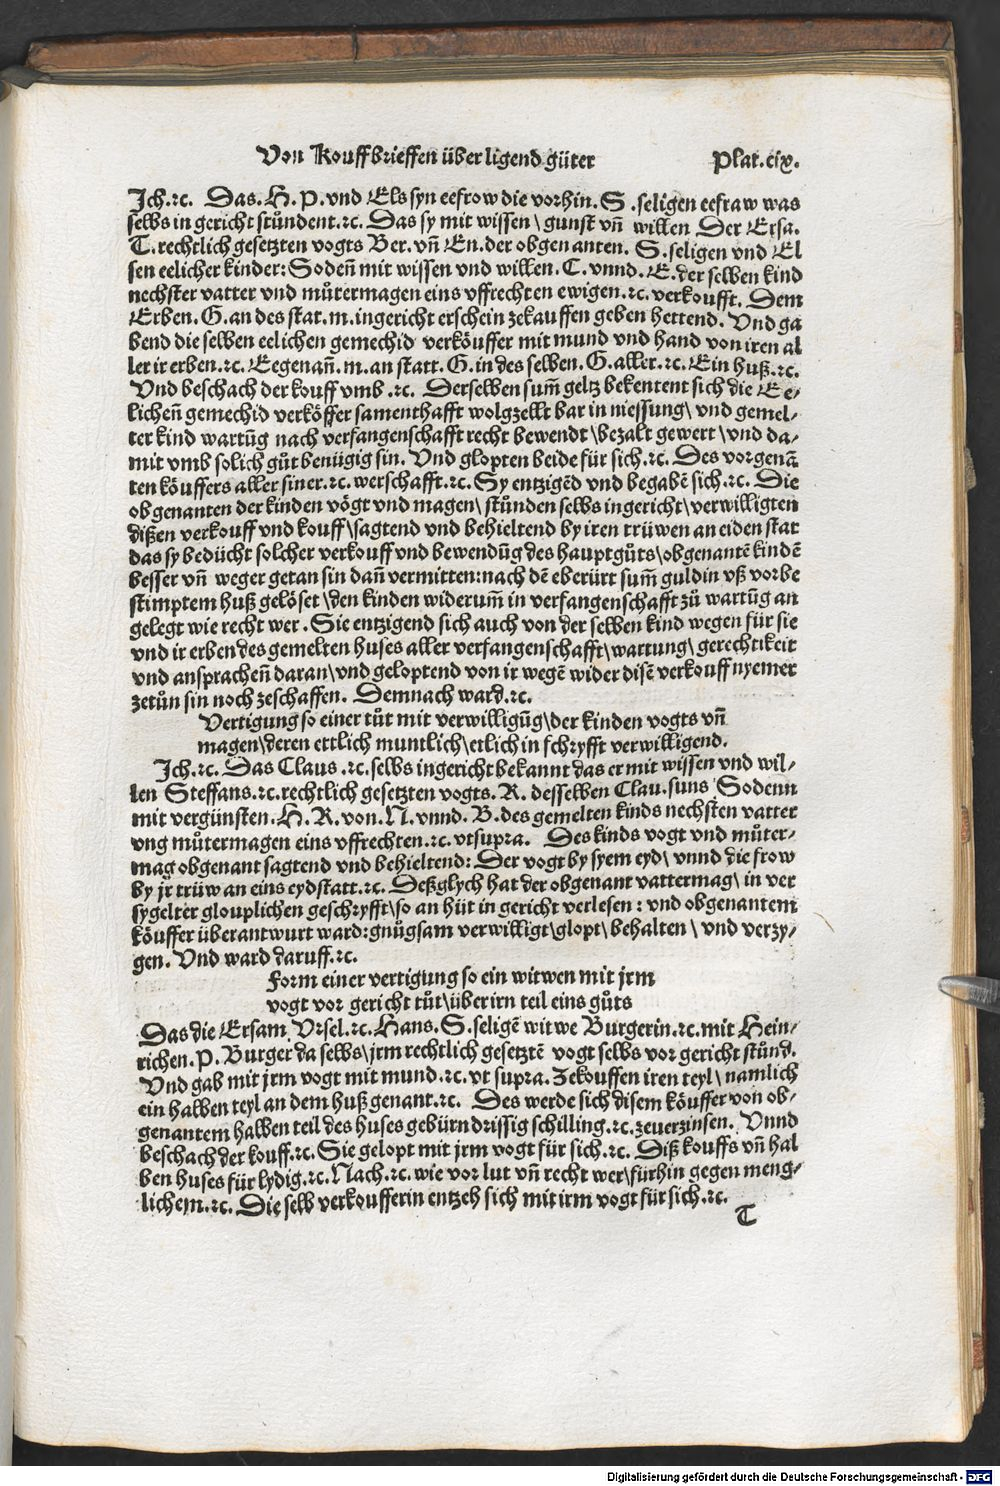 Von Kouffbrieffen über ligend güter Plat.cix.
Ich.⁊c. Das. H. P. vnd Els syn eefrow die vorhin. S .seligen eefraw was
selbs in gericht stůndent.⁊c. Das sy mit wissen \ gunst vñ willen Der Ersa.
T. rechtlich gesetzten vogts Ber. vñ En. der obgenanten. S. seligen vnd El
sen eelicher kinder: Sodeñ mit wissen vnd willen. C. vnnd. E. der selben kind
nechster vatter vnd můtermagen eins vffrechten ewigen.⁊c. verkoufft. Dem
Erben. G. an des stat. m. in gericht erschein zekauffen geben hettend. Vnd ga
bend die selben eelichen gemechid verköuffer mit mund vnd hand von iren al
ler ir erben.⁊c. Eegenañ. m. an statt. G. in des selben. G. aller.⁊c. Ein huß.⁊c.
Vnd beschach der kouff vmb .⁊c. Derselben sum̃ geltz bekentent sich die Ee⸗
licheñ gemechid verköffer samenthafft wolgzellt bar in niessung\ vnd gemel⸗
ter kind wartũg nach verfangenschafft recht bewendt \bezalt gewert \vnd da⸗
mit vmb solich gůt benügig sin. Vnd glopten beide für sich.⁊c. Des vorgenã
ten köuffers aller siner.⁊c. werschafft.⁊c. Sy entzigẽd vnd begabẽ sich.⁊c. Die
obgenanten der kinden vögt vnd magen\ stůnden selbs in gericht\ verwilligten
dißen verkouff vnd kouff \sagtend vnd behieltend by iren trüwen an eiden stat
das sy bedücht solcher verkouff vnd bewendũg des hauptgůts \obgenantẽ kindẽ
besser vñ weger getan sin dañ vermitten: nach dẽ eberürt sum̃ guldin vß vorbe
stimptem huß gelöset \den kinden widerum̃ in verfangenschafft zů wartũg an
gelegt wie recht wer . Sie entzigend sich auch von der selben kind wegen für sie
vnd ir erben des gemelten huses aller verfangenschafft \wartung\ gerechtikeit
vnd anspracheñ daran \vnd geloptend von ir wegẽ wider disẽ verkouff nyemer
zetůn sin noch zeschaffen. Demnach ward.⁊c.
Vertigung so einer tůt mit verwilligũg \der kinden vogts vñ
magen\deren ettlich muntlich \etlich in schryfft verwilligend.
Ich.⁊c. Das Claus .⁊c. selbs in gericht bekannt das er mit wissen vnd wil⸗
len Steffans.⁊c. rechtlich gesetzten vogts. R. desselben Clau. suns Sodenn
mit vergünsten. H. R. von. N. vnnd. B. des gemelten kinds nechsten vatter
vng můtermagen eins vffrechten.⁊c. vtsupra. Des kinds vogt vnd můter⸗
mag obgenant sagtend vnd behieltend: Der vogt by syem eyd\ vnnd die frow
by jr trüw an eins eydstatt.⁊c. Deßglych hat der obgenant vattermag\ in ver
sygelter glouplichen geschryfft \so an hüt in gericht verlesen : vnd obgenantem
köuffer überantwurt ward: gnũgsam verwilligt \glopt \ behalten \ vnd verzy⸗
gen. Vnd ward daruff.⁊c.
Form einer vertigung so ein witwen mit jrm
vogt vor gericht tůt \über irn teil eins gůts
Das die Ersam Vrsel.⁊c. Hans. S. seligẽ witwe Burgerin.⁊c. mit Hein⸗
richen. P. Burger da selbs\ jrm rechtlich gesetztẽ vogt selbs vor gericht stůnd.
Vnd gab mit jrm vogt mit mund.⁊c. vt supra. Zekouffen iren teyl \ namlich
ein halben teyl an dem huß genant.⁊c. Des werde sich disem köuffer von ob⸗
genantem halben teil des huses gebürn drissig schilling.⁊c. zeuerzinsen. Vnnd
beschach der kouff.⁊c. Sie gelopt mit jrm vogt für sich.⁊c. Diß kouffs vñ hal
ben huses für lydig.⁊c. Nach.⁊c. wie vor lut vñ recht wer\ fürhin gegen meng⸗
lichem.⁊c. Die selb verkoufferin entzeh sich mit irm vogt für sich.⁊c.
T
Digitalisierung gefördert durch die Deutsche Forschungsgemeinschaft - DFG